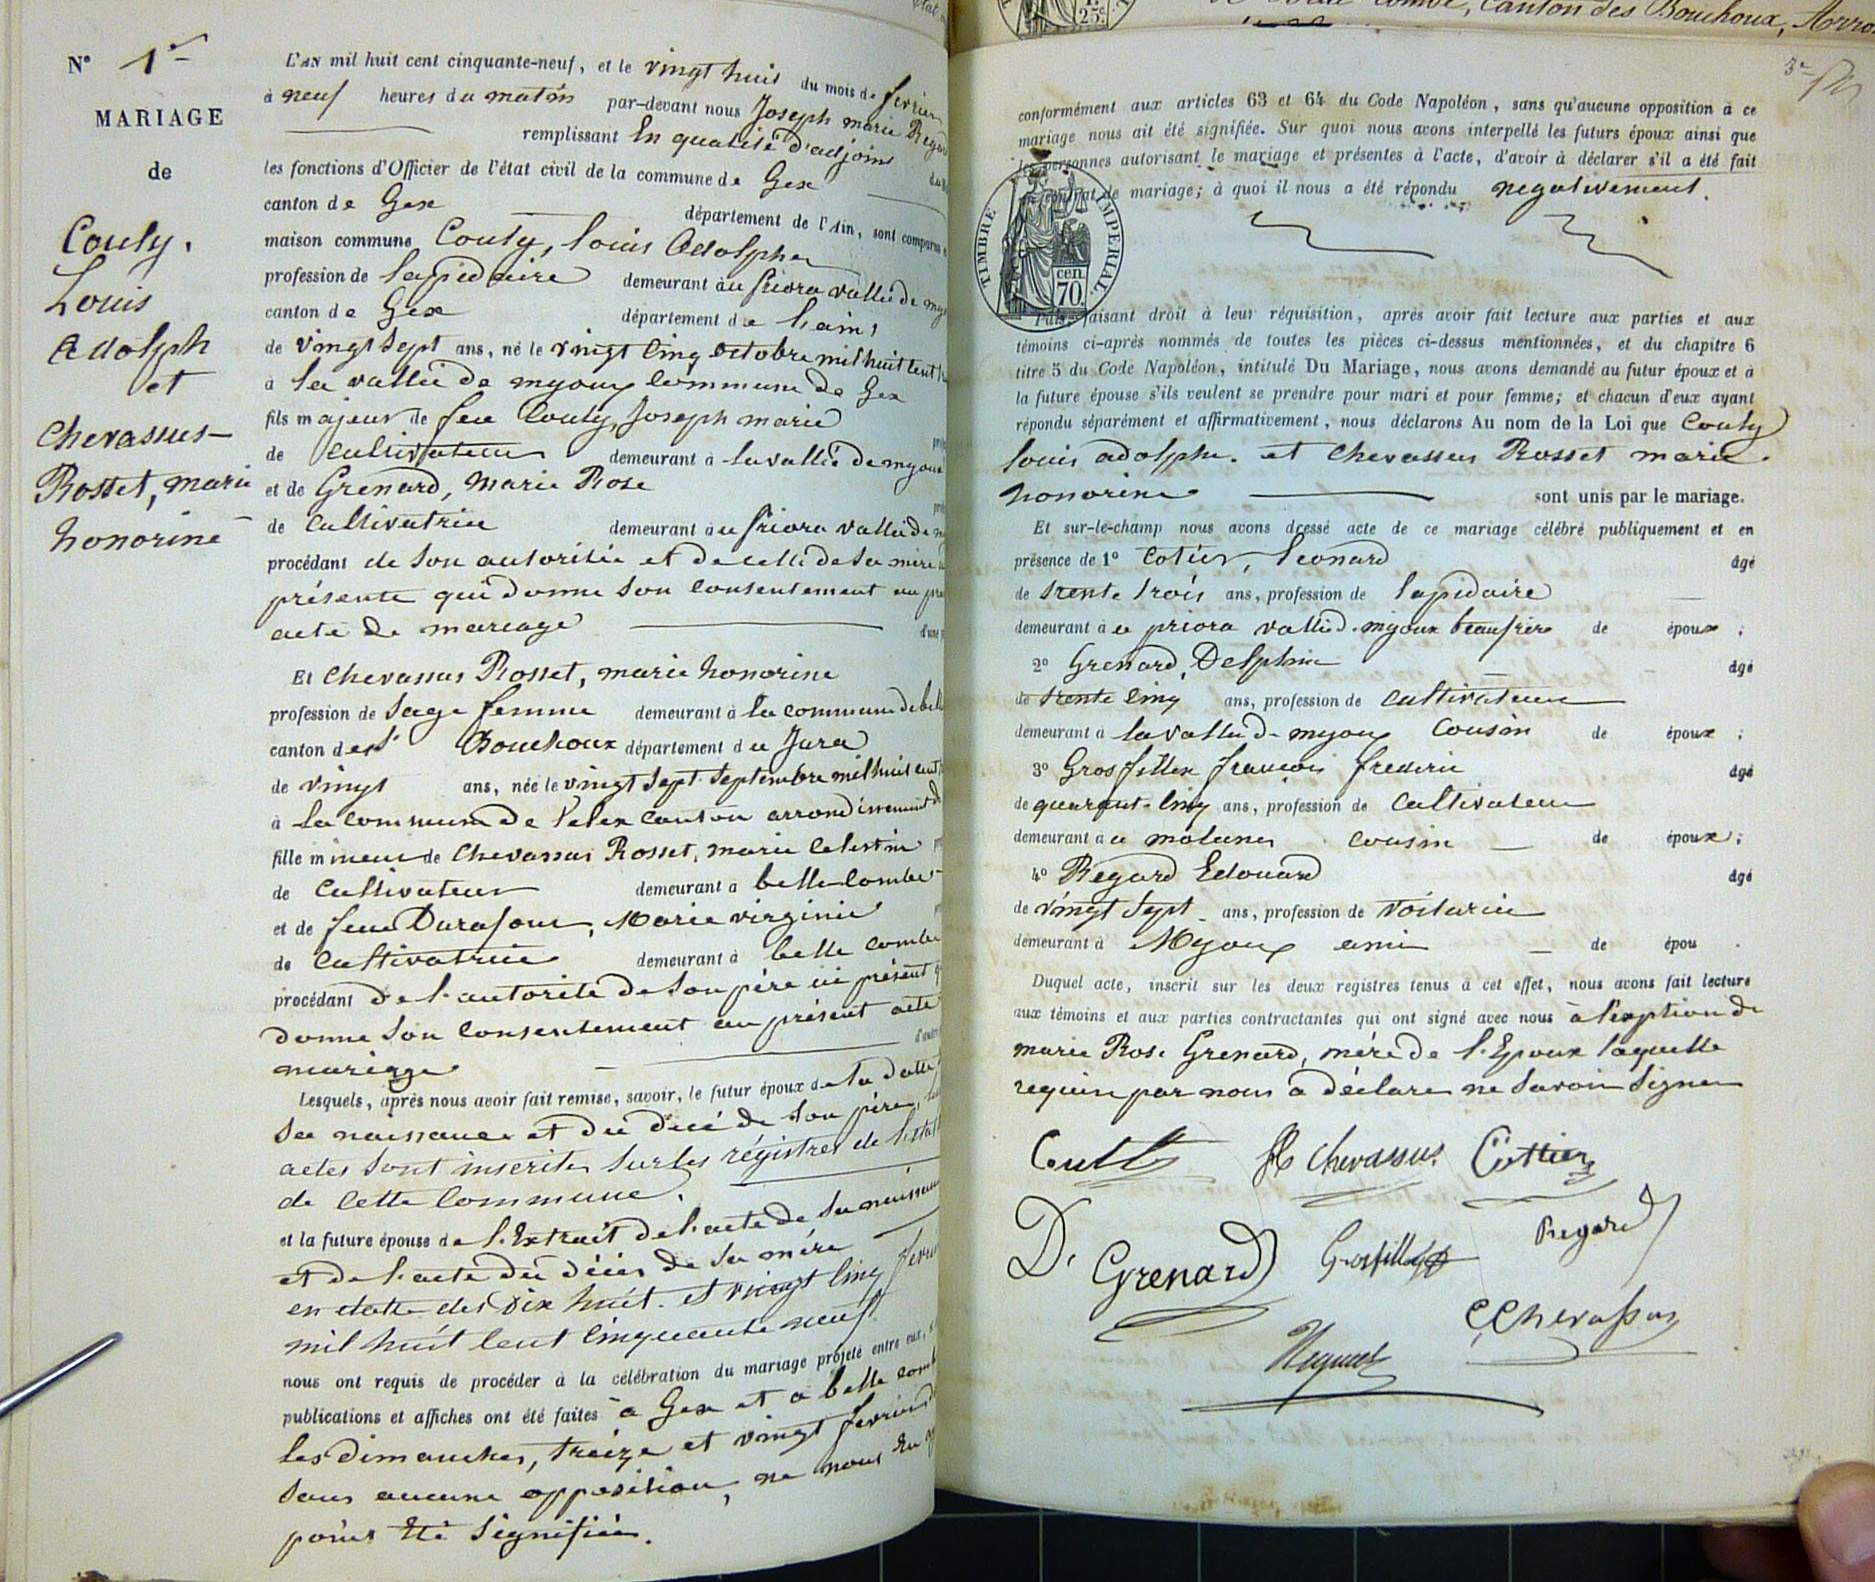 N° 1er
MARIAGE
de
Couty.
Louis
Adolph
et
Chevassus-
Rosset, marie
honorine
L'AN mil huit cent cinquante-neuf, et le vingt huit du mois de fevrier
à neuf heures du matin par-devant nous Joseph marie Regard
remplissant En qualité d'adjoint
les fonctions d'Officier de l'état civil de la commune de Gex
canton de Gex département de l'Ain, sont comparus
maison commune Couty, louis Adolphe
profession de lapidaire demeurant à priora vallée de
canton de Gex département de lain,
de vingt Sept ans, né le vingt cinq octobre mil huit cent
à la vallée de myoux commune de Gex
fils majeur de feu Couty, Joseph marie
de Cultivateur demeurant à la vallée de myoux
et de Grenard, Marie Rose
de Cultivatrice demeurant à priora vallée de
procédant de Son autoritée et de celle de Sa mère
présente qui donne Son Consentement au
acte de mariage
Et Chevassus Rosset, marie honorine
profession de Sage femme demeurant à la commune de
canton des Bouchoux département du Jura
de vingt ans, née le vingt Sept Septembre mil huit cent
à la commune de Lelex canton arrondissement de
fille mineur de Chevassus Rosset, marie Celestin
de Cultivateur demeurant à belle Combe
et de feue Durafour, Marie virginie
de Cultivatrice demeurant à belle Combe
procédant de l'autorité de Son père ici présent
donne Son Consentement au présent acte
mariage
Lesquels, après nous avoir fait remise, savoir, le futur époux de la datte
Sa naissance et du décé de Son père,
actes Sont inscrits Sur les régistres de l'état
de cette Commune.
et la future épouse de l'Extrait de l'acte de Sa naissance
et de l'acte du décès de Sa mère
en datte des dix huit et vingt cinq fevrier
mil huit Cent Cinquante neuf
nous ont requis de procéder à la célébration du mariage projeté entre eux,
publications et affiches ont été faites à Gex et a belle combe
les dimanches, treize et vingt fevrier
Sans aucune opposition, ne nous En
point Eté Signifiée.
Canton des Bouchoux,
3e
conformément aux articles 63 et 64 du Code Napoléon, sans qu'aucune opposition à ce
mariage nous ait été signifiée. Sur quoi nous avons interpellé les futurs époux ainsi que
les personnes autorisant le mariage et présentes à l'acte, d'avoir à déclarer s'il a été fait
contrat de mariage; à quoi il nous a été répondu negativement.
TIMBRE IMPERIAL
cen.
70.
Puis, faisant droit à leur réquisition, après avoir fait lecture aux parties et aux
témoins ci-après nommés de toutes les pièces ci-dessus mentionnées, et du chapitre 6
titre 5 du Code Napoléon, intitulé Du Mariage, nous avons demandé au futur époux et à
la future épouse s'ils veulent se prendre pour mari et pour femme; et chacun d'eux ayant
répondu séparément et affirmativement, nous déclarons Au nom de la Loi que Couty
louis adolphe. et Chevassus Rosset marie
honorine sont unis par le mariage.
Et sur-le-champ nous avons dressé acte de ce mariage célébré publiquement et en
présence de 1° Cotier, Leonard âgé
de trente trois ans, profession de lapidaire
demeurant à priora vallé d. myoux beaufrère de époux;
2° Grenard, Delphin âgé
de trente cinq ans, profession de cultivateur
demeurant à la vallé d. myoux Cousin de époux;
3° Grosfillex francois frederic âgé
de quarante-cinq ans, profession de Cultivateur
demeurant à molunes cousin de époux;
4° Regard Edouard âgé
de vingt Sept ans, profession de Voiturier
demeurant à Myoux ami de épou
Duquel acte, inscrit sur les deux registres tenus à cet effet, nous avons fait lecture
aux témoins et aux parties contractantes qui ont signé avec nous à l'exption de
marie Rose Grenard, mère de l'Epoux laquelle
requise par nous a déclaré ne Savoir Signer
Chevassus Cottier
D. Grenard Regard
C, Chevassus